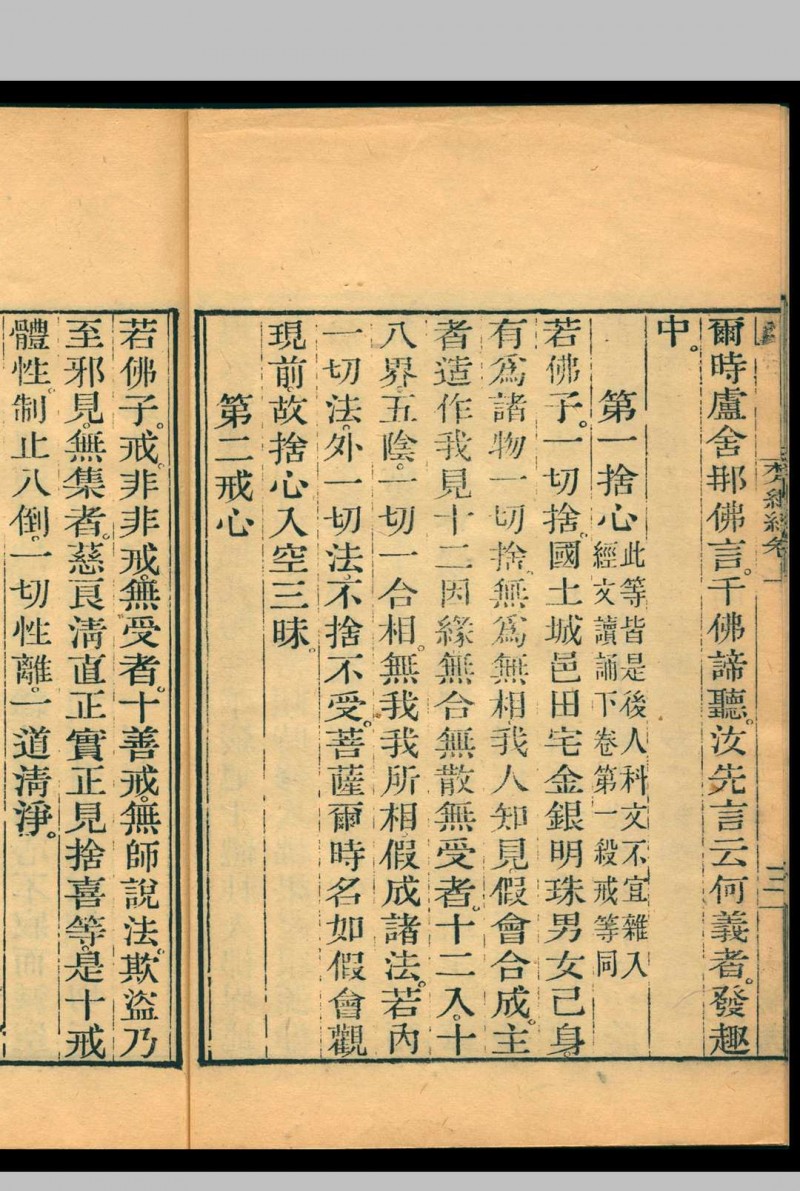 梵網經卷一
爾時盧舍那佛言。千佛諦聽。汝先言云何義者。發趣
中。
第一捨心此等皆是後人科文不宜雜入
經文讀誦下卷第一殺戒等同
若佛子。一切捨。國土城邑田宅金銀明珠男女己身
有爲諸物一切捨。無爲無相。我人知見假會合成。主
者造作我見十二因緣。無合無散無受者。十二入。十
八界。五陰。一切一合相。無我我所相。假成諸法。若內
一切法。外一切法。不捨不受。菩薩爾時名如假會觀
現前。故捨心入空三昧。
第二戒心
若佛子。戒。非非戒。無受者。十善戒。無師說法。欺盜乃
至邪見。無集者。慈良淸直正實正見捨喜等。是十戒
體性。制止八倒。一切性離。一道淸淨。